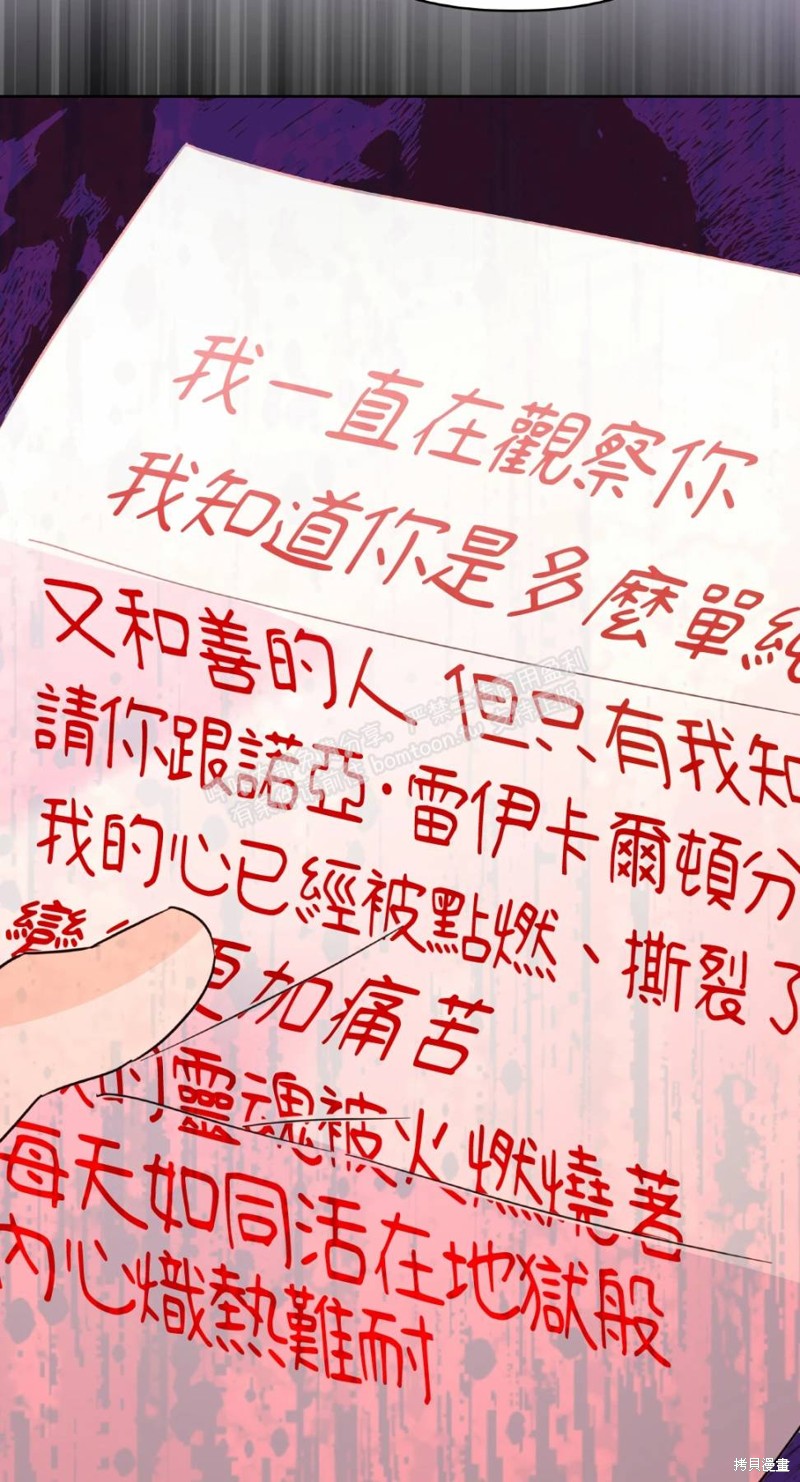 我一直在觀察你
我知道你是多麼單純
又和善的人 但只有我知
請你跟諾亞·雷伊卡爾頓分
我的心已經被點燃、撕裂了
變 更加痛苦
的靈魂被火燃燒著
每天如同活在地獄般
內心熾熱難耐
拷貝漫畫